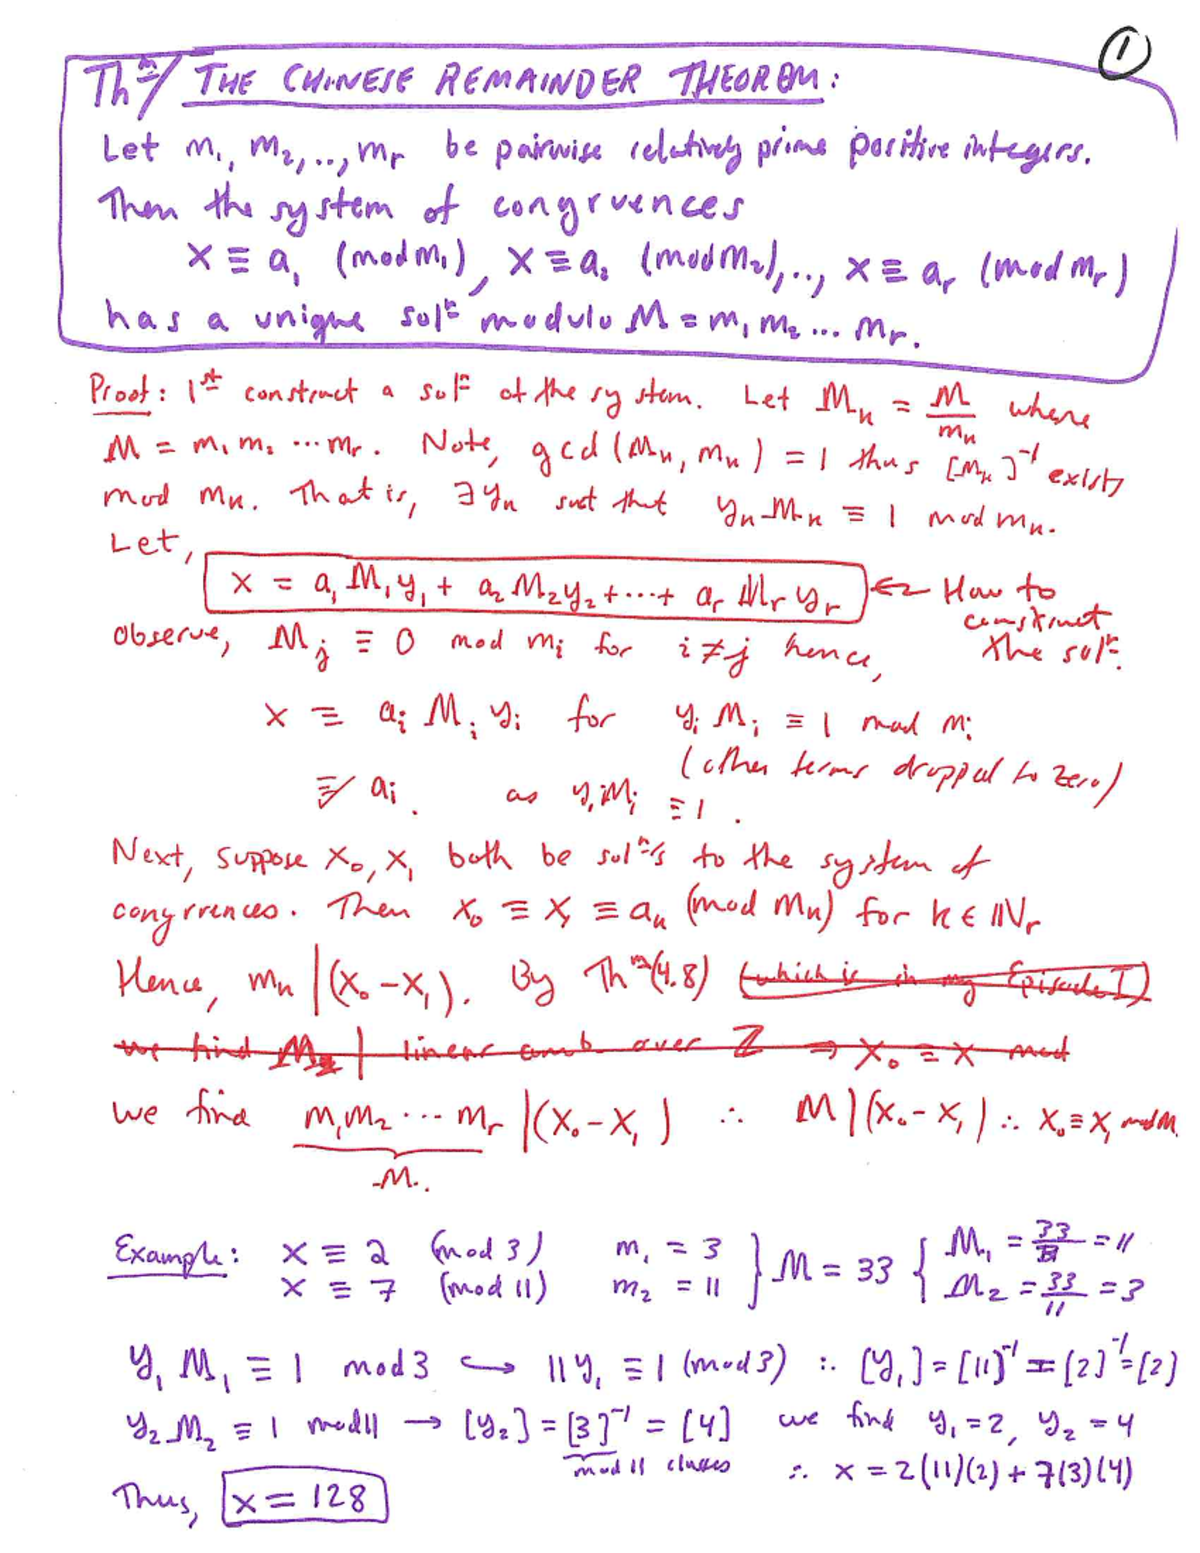 1
Thm/ THE CHINESE REMAINDER THEOREM:
Let m₁, m₂, .., mr be pairwise relatively prime positive integers.
Then the system of congruences
x ≡ a₁ (mod m₁), x ≡ a₂ (mod m₂), .., x ≡ ar (mod mr)
has a unique solⁿ modulo M = m₁ m₂ ... mr.
Proof: 1st construct a solⁿ of the system. Let Mk = M/mk where
M = m₁ m₂ ... mr. Note, gcd(Mk, mk) = 1 thus [Mk]⁻¹ exists
mod mk. That is, ∃ yk such that yk Mk ≡ 1 mod mk.
Let,
x = a₁ M₁ y₁ + a₂ M₂ y₂ + ... + ar Mr yr ← How to construct the solⁿ.
observe, Mj ≡ 0 mod mi for i ≠ j hence,
x ≡ ai Mi yi for yi Mi ≡ 1 mod mi
(other terms dropped to zero)
≡ ai. as yi Mi ≡ 1.
Next, suppose x₀, x₁ both be solⁿ's to the system of
congrrences. Then x₀ ≡ x₁ ≡ ak (mod mk) for k ∈ ℕr
Hence, mk | (x₀ - x₁). By Thm(4.8) (which is in my Episode I)
we find M | linear comb over ℤ ⇒ x₀ = x mod
we find m₁m₂ ... mr | (x₀ - x₁) ∴ M | (x₀ - x₁) ∴ x₀ ≡ x₁ mod M.
M.
Example: x ≡ 2 (mod 3) m₁ = 3 } M = 33 { M₁ = 33/3 = 11
x ≡ 7 (mod 11) m₂ = 11 M₂ = 33/11 = 3
y₁ M₁ ≡ 1 mod 3 ↪ 11y₁ ≡ 1 (mod 3) ∴ [y₁] = [11]⁻¹ = [2]⁻¹ = [2]
y₂ M₂ ≡ 1 mod 11 → [y₂] = [3]⁻¹ = [4] we find y₁ = 2, y₂ = 4
mod 11 classes ∴ x = 2(11)(2) + 7(3)(4)
Thus, x = 128